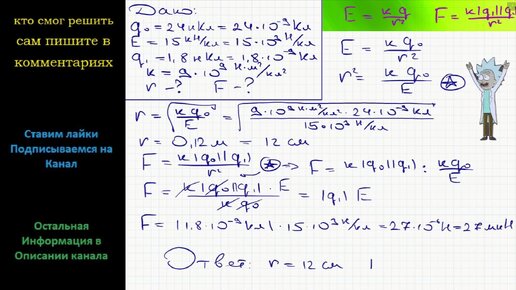 кто смог решить
сам пишите в
комментариях
Ставим лайки
Подписываемся на
Канал
Остальная
Информация в
Описании канала
Дано:
q₀ = 24 нКл = 24·10⁻⁹ Кл
E = 15 кН/Кл = 15·10³ Н/Кл
q₁ = 1,8 нКл = 1,8·10⁻⁹ Кл
k = 9·10⁹ Н·м²/Кл²
r - ? F - ?
E = kq/r² F = k|q₁||q₂|/r²
E = kq₀/r²
r² = kq₀/E A
r = √(kq₀/E) = √(9·10⁹ Н·м²/Кл²·24·10⁻⁹ Кл/15·10³ Н/Кл)
r = 0,12 м = 12 см
F = k|q₀||q₁|/r² A → F = k|q₀||q₁| : kq₀/E
F = k|q₀||q₁|·E/kq₀ = |q₁|E
F = |1,8·10⁻⁹ Кл|·15·10³ Н/Кл = 27·10⁻⁶ Н = 27 мкН
Ответ: r = 12 см